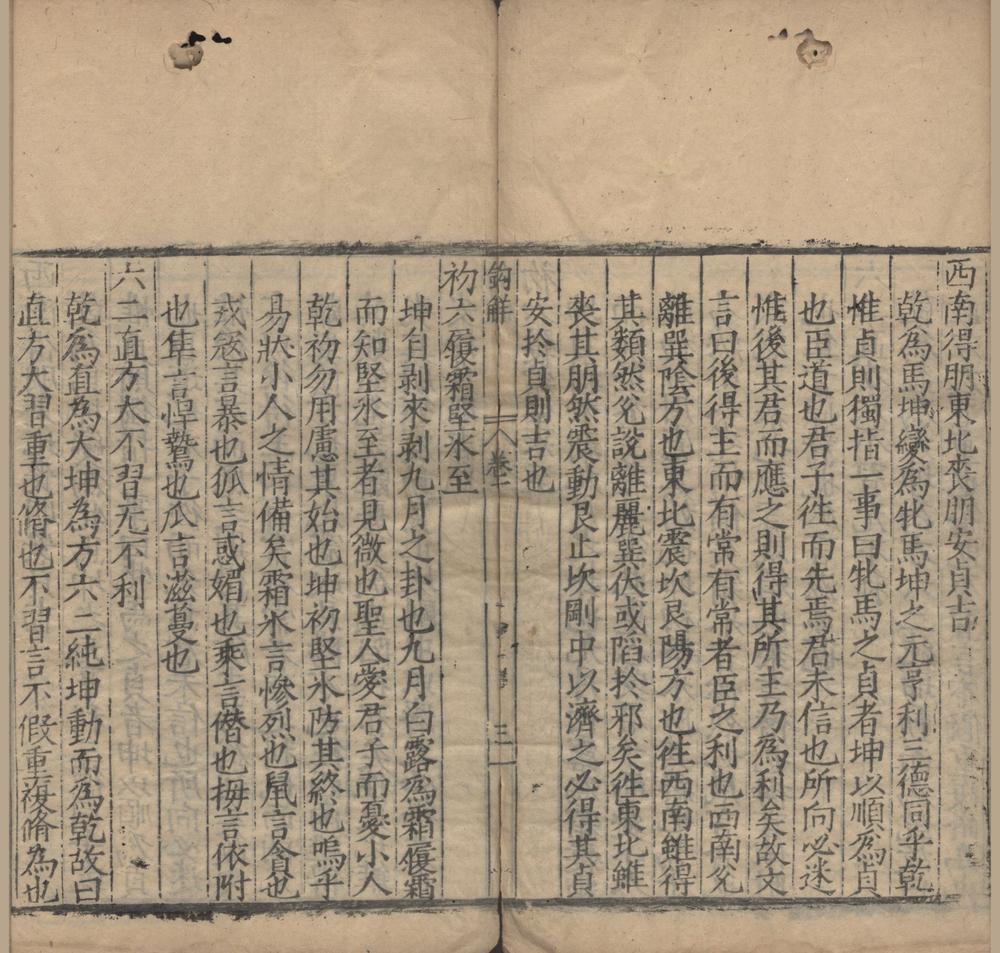 西南得朋東北喪朋安貞吉
乾為馬坤變為牝馬坤之元亨利三德同乎乾
惟貞則獨指一事曰牝馬之貞者坤以順為貞
也臣道也君子徃而先焉君未信也所向必迷
惟後其君而應之則得其所主乃為利矣故文
言曰後得主而有常有常者臣之利也西南兊
離巽陰方也東北震坎艮陽方也徃西南雖得
其類然兊說離麗巽伏或䧟扵邪矣徃東北雖
喪其朋然震動艮止坎剛中以濟之必得其貞
安扵貞則吉也
鈎解 卷二 三
初六履霜堅氷至
坤自剥來剥九月之卦也九月白露為霜履霜
而知堅氷至者見微也聖人愛君子而憂小人
乾初勿用慮其始也坤初堅氷防其終也嗚乎
易狀小人之情備矣霜氷言慘烈也鼠言貪也
戎宼言暴也狐言惑媚也乘言僭也拇言依附
也隼言悍鷙也瓜言滋蔓也
六二直方大不習无不利
乾為直為大坤為方六二純坤動而為乾故曰
直方大習重也脩也不習言不假重複脩為也